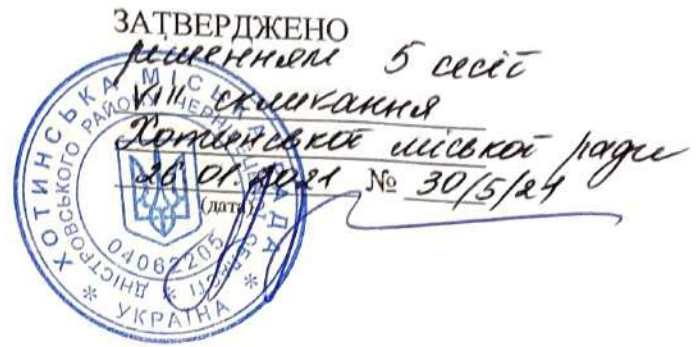 ЗАТВЕРДЖЕНО
рішенням 5 сесії
VIII скликання
Хотинської міської ради
26.01.2021 № 30/5/21
(дата)
ХОТИНСЬКА МІСЬКА РАДА
ДНІСТРОВСЬКОГО РАЙОНУ
04062205
* УКРАЇНА *